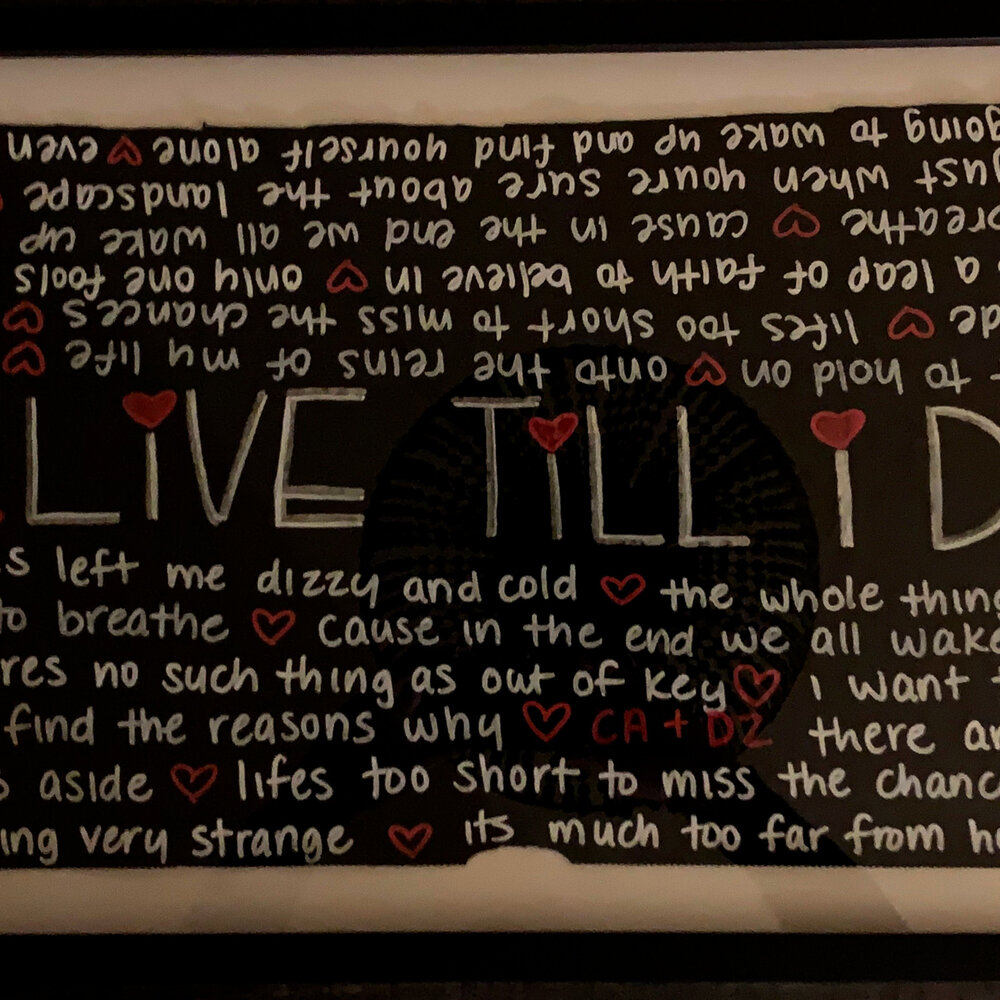 going to wake up and find yourself alone ♥ even
just when youre sure about the landscape
breathe ♥ cause in the end we all wake up
a leap of faith to believe in ♥ only one fools
♥ lifes too short to miss the chances ♥
to hold on ♥ onto the reins of my life ♥
LiVE TiLL i D
s left me dizzy and cold ♥ the whole thing
to breathe ♥ cause in the end we all wake
res no such thing as out of key ♥ i want
find the reasons why ♥ CA + DZ there ar
aside ♥ lifes too short to miss the chanc
ing very strange ♥ its much too far from h